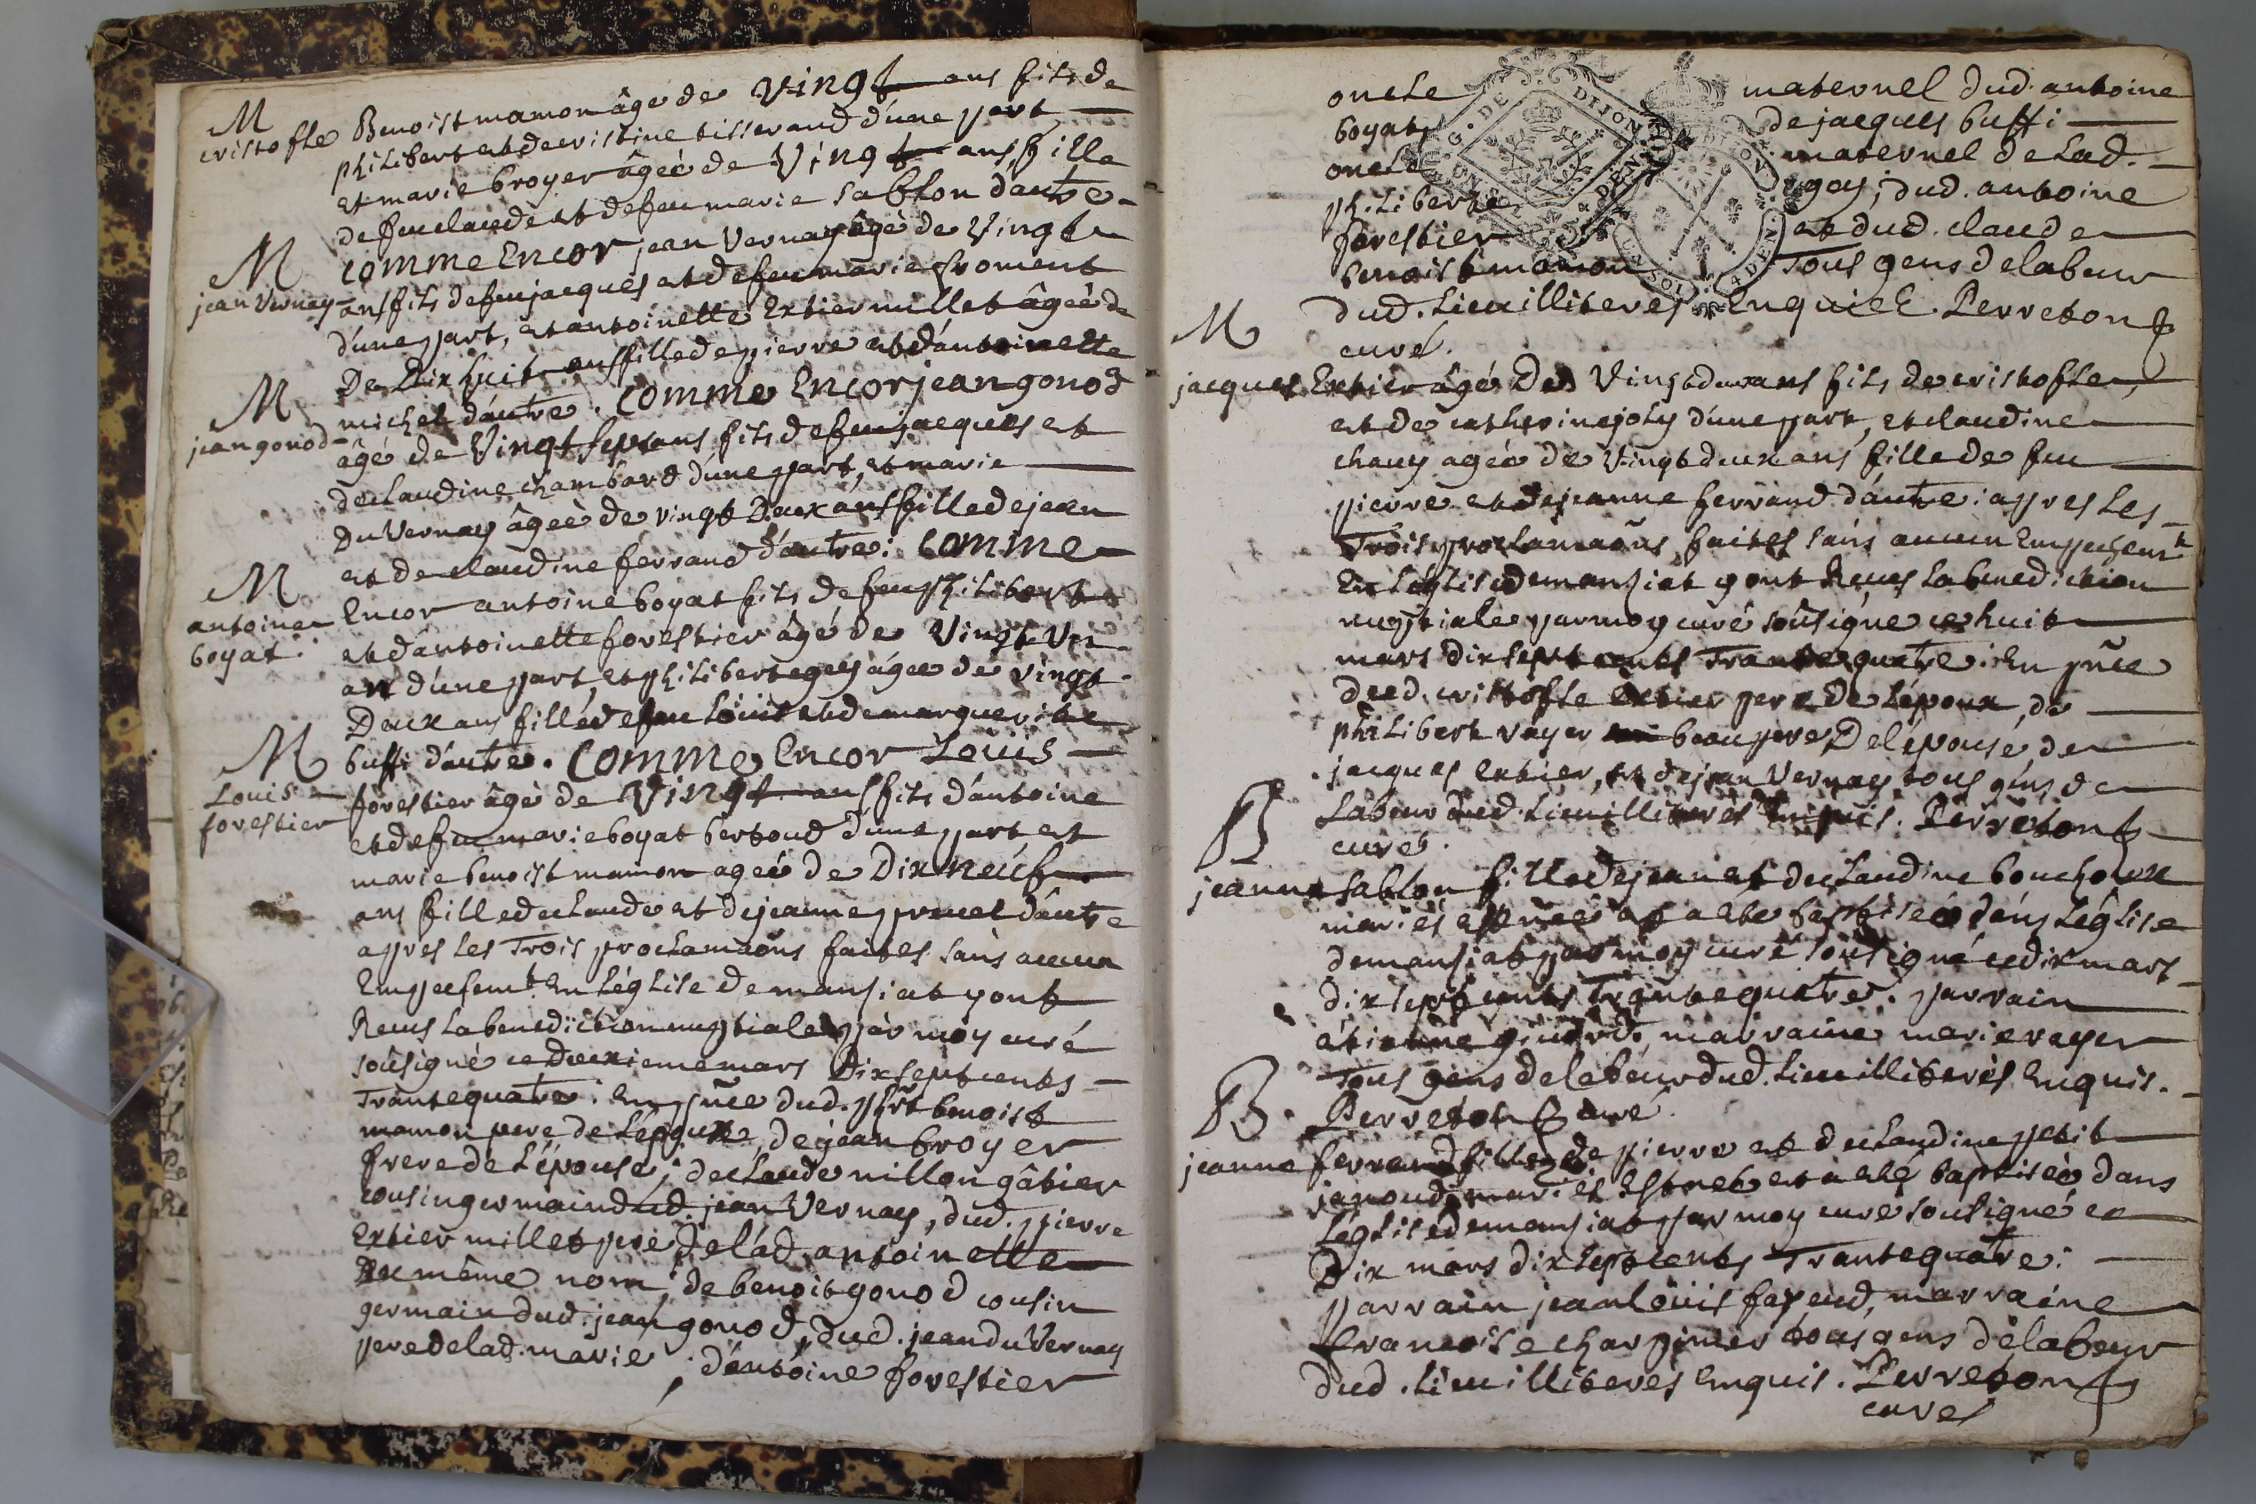 M
cristofle Benoist mamon âgé de Vingt ans fils de
philibert et de cristine tisserand d'une part
et marie broyer âgeé de Vingt ans fille
de feu claude et de feu marie sablon d'autre
M
comme Encor jean Vernay âgé de Vingt
jean Vernay ans fils de feu jacques et de feu marie froment
d'une part, et antoinette Extier millet âgeé de
De Dix huit ans fille de pierre et d'antoinette
M
michel d'autre. Comme Encor jean gonod
jean gonod âgé de Vingt sept ans fils de feu jacques et
de claudine chambard d'une part, et marie
Du Vernay âgeé de vingt Deux ans fille de jean
et de claudine ferrand d'autre: Comme
M
antoine Encor antoine boyat fils de feu philibert
boyat. et d'antoinette forestier âgé de Vingt Un
an d'une part, et philiberte gey âgeé de vingt
Deux ans fille de feu Loüis et de marguerite
M
buffi d'autre. Comme Encor Loüis
Louis forestier âgé de Vingt ans fils d'antoine
forestier et de feu marie boyat bertoud d'une part et
marie benoist mamon ageé de Dix neuf
ans fille de claude et de jeanne pruel d'autre
apres les Trois proclamaõns faites sans aucun
Empechemt. En l'église de mansiat y ont
Reçus la benediction nuptiale par moy curé
soûsigné ce deuxieme mars Dix sept cents
Trante quatre: En p̃nce dud. phr̃t benoist
mamon pere de L'époux, de jean broyer
frere de L'épouse; de claude millon gâtier
cousin germain dud. jean Vernay, dud. pierre
Extier millet pere de lad. antoinette
Du même nom; de benoit gonod cousin
germain dud. jean gonod, dud. jean du Vernay
pere de lad. marie; d'antoine forestier
oncle maternel dud. antoine
boyat, de jacques buffi
oncle maternel de Lad.
philiberte gey; dud. antoine
forestier et dud. claude
benoist mamon Tous gens de labeur
dud. Lieu illiteres Enquis. Perreton
curé.
M
jacques Extier âgé De Vingt deux ans fils de cristofle,
et de catherine joly d'une part, et claudine
chany ageé de Vingt deux ans fille de feu
pierre et de jeanne ferrand d'autre: apres Les
Trois proclamaõns faites sans aucun Empechemt
En L'église de mansiat y ont Reçus La benediction
nuptiale par moy curé soûsigné ce huit
mars dix sept cents Trante quatre: En p̃nce
dud. cristofle Extier pere de L'époux, de
philibert rayer beau pere De L'épouse, de
jacques Extier, et de jean Vernay tous gens de
Labeur dud. Lieu illiteres Enquis. Perreton
curé.
B
jeanne sablon fille de jean et de claudine bouchoux
mariés est neé et a eté baptiseé dans L'église
de mansiat par moy curé soûsigné ce dix mars
dix sept cents Trante quatre. parrain
étienne marraine marie rayer
Tous gens de labeur dud. Lieu illiterés Enquis.
B. Perreton curé.
jeanne ferrand fille de pierre et de claudine petit
janoud mariés Est neé et a eté baptiseé dans
L'église de mansiat par moy curé soûsigné ce
Dix mars dix sept cents Trante quatre:
parrain jean Loüis marraine
francoise charpiner tous gens de labeur
dud. Lieu illiteres Enquis. Perreton
curé